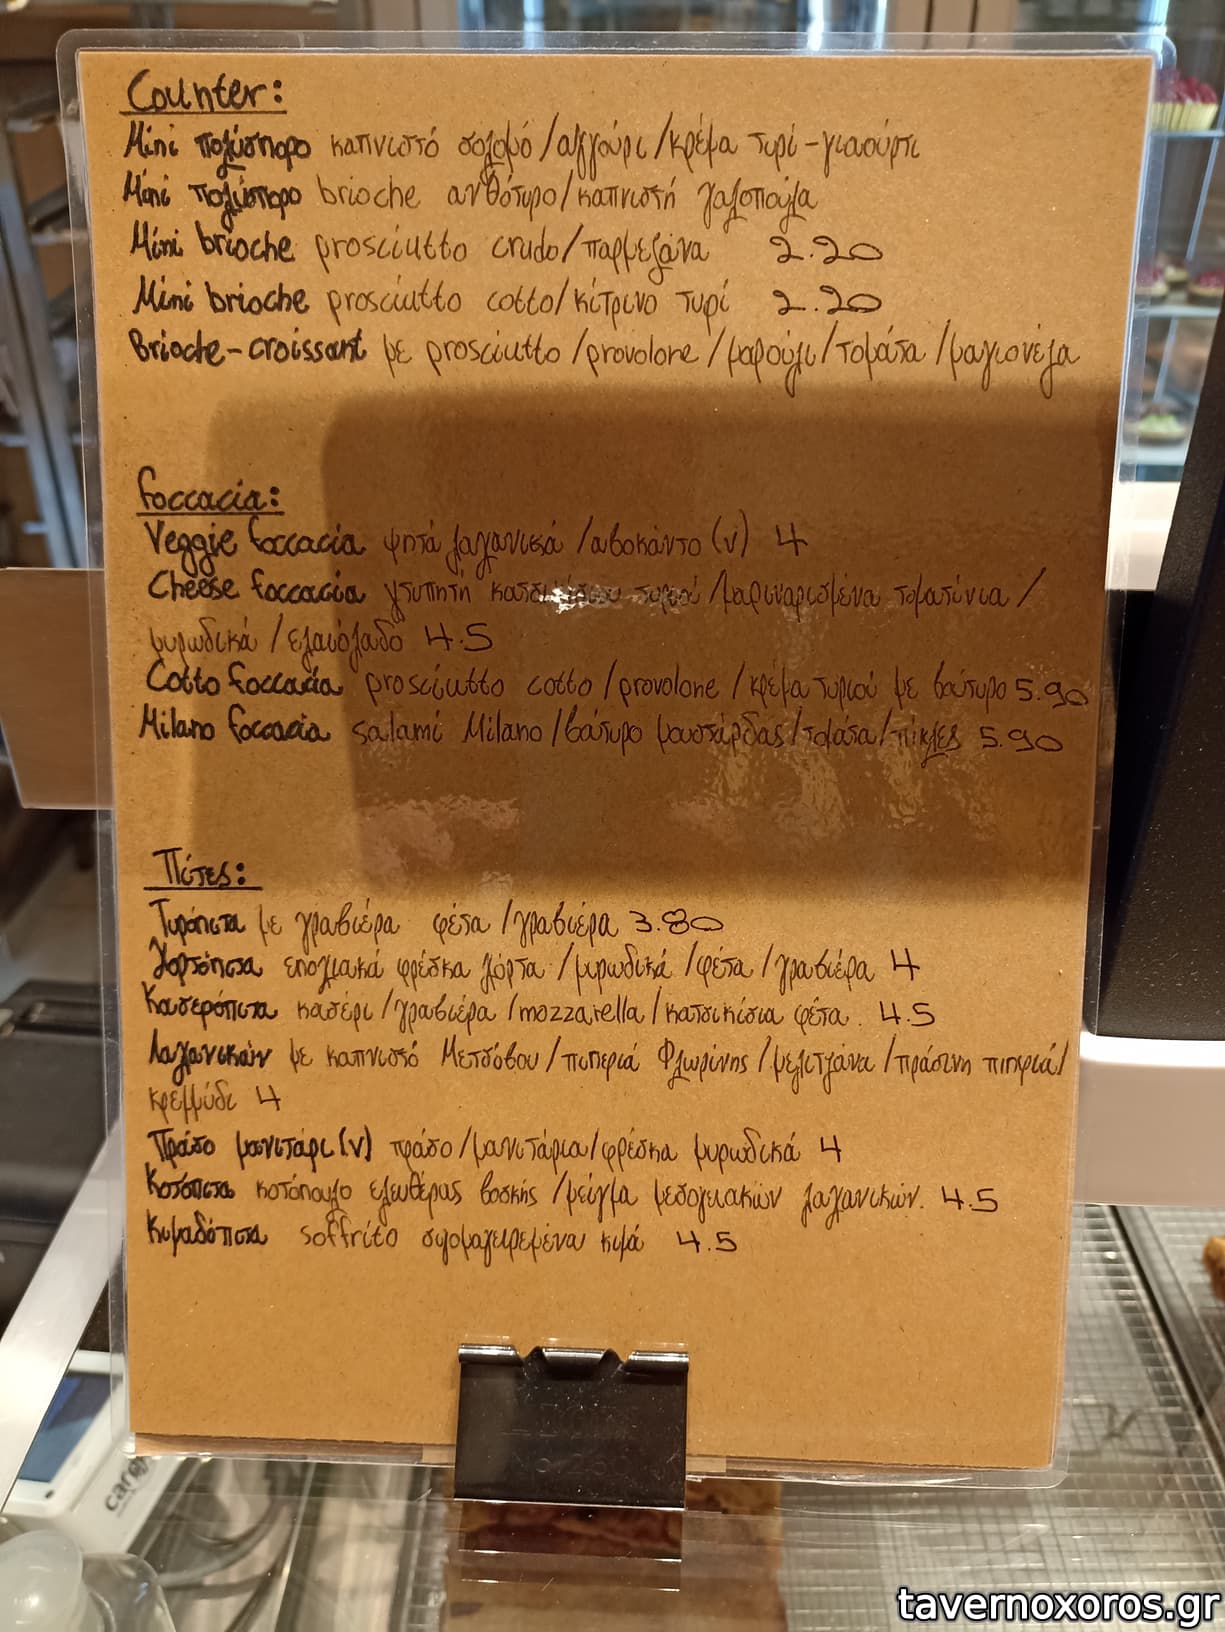 Counter:
Mini πολύσπορο καπνιστό σολομό/αγγούρι/κρέμα τυρί-γιαούρτι
Mini πολύσπορο brioche ανθότυρο/καπνιστή γαλοπούλα
Mini brioche prosciutto crudo/παρμεζάνα 2.20
Mini brioche prosciutto cotto/κίτρινο τυρί 2.20
Brioche-croissant με prosciutto/provolone/μαρούλι/τομάτα/μαγιονέζα
foccacia:
Veggie foccacia ψητά λαχανικά/αβοκάντο(v) 4
Cheese foccacia χτυπητή τυριά/μαριναρισμένα τοματίνια/
μυρωδικά/ελαιόλαδο 4.5
Cotto foccacia prosciutto cotto/provolone/κρέμα τυριού με βούτυρο 5.90
Milano foccacia salami Milano/βούτυρο μουστάρδας/τομάτα/πίκλες 5.90
Πίτες:
Τυρόπιτα με γραβιέρα φέτα/γραβιέρα 3.80
Χορτόπιτα εποχιακά φρέσκα χόρτα/μυρωδικά/φέτα/γραβιέρα 4
Κασερόπιτα κασέρι/γραβιέρα/mozzarella/κατσικίσια φέτα. 4.5
Λαχανικών με καπνιστό Μετσόβου/πιπεριά Φλωρίνης/μελιτζάνα/πράσινη πιπεριά/
κρεμμύδι 4
Πράσο μανιτάρι(v) πράσο/μανιτάρια/φρέσκα μυρωδικά 4
Κοτόπιτα κοτόπουλο ελευθέρας βοσκής/μείγμα μεσογειακών λαχανικών. 4.5
Κιμαδόπιτα soffrito σιγομαγειρεμένα κιμά 4.5
tavernoxoros.gr